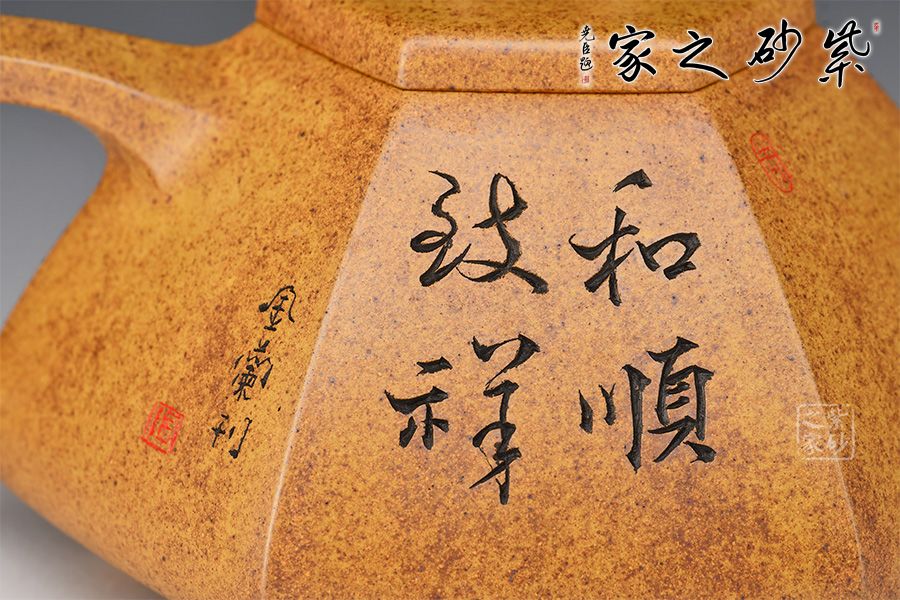 紫砂之家
堯臣題
和順
致祥
紫砂
之家